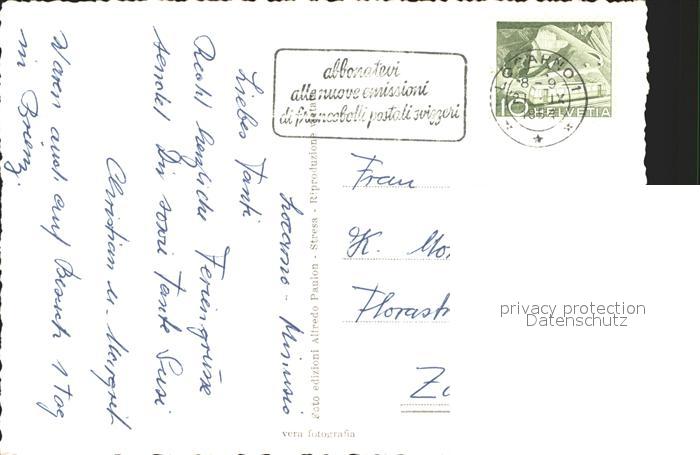 abbonatevi
alle nuove emissioni
di francobolli postali svizzeri
LOCARNO 1
10 HELVETIA
Locarno - Minusio
Liebes Tanti
Recht herzliche Feriengrüsse
sendet Dir sowie Tante Susi
Christian u. Margrit
Waren auch auf Besuch 1 Tag
in Brienz.
Foto edizioni Alfredo Paulon - Stresa - Riproduzione vietata
vera fotografia
Frau
K. Mo
Florast
Zü
privacy protection
Datenschutz